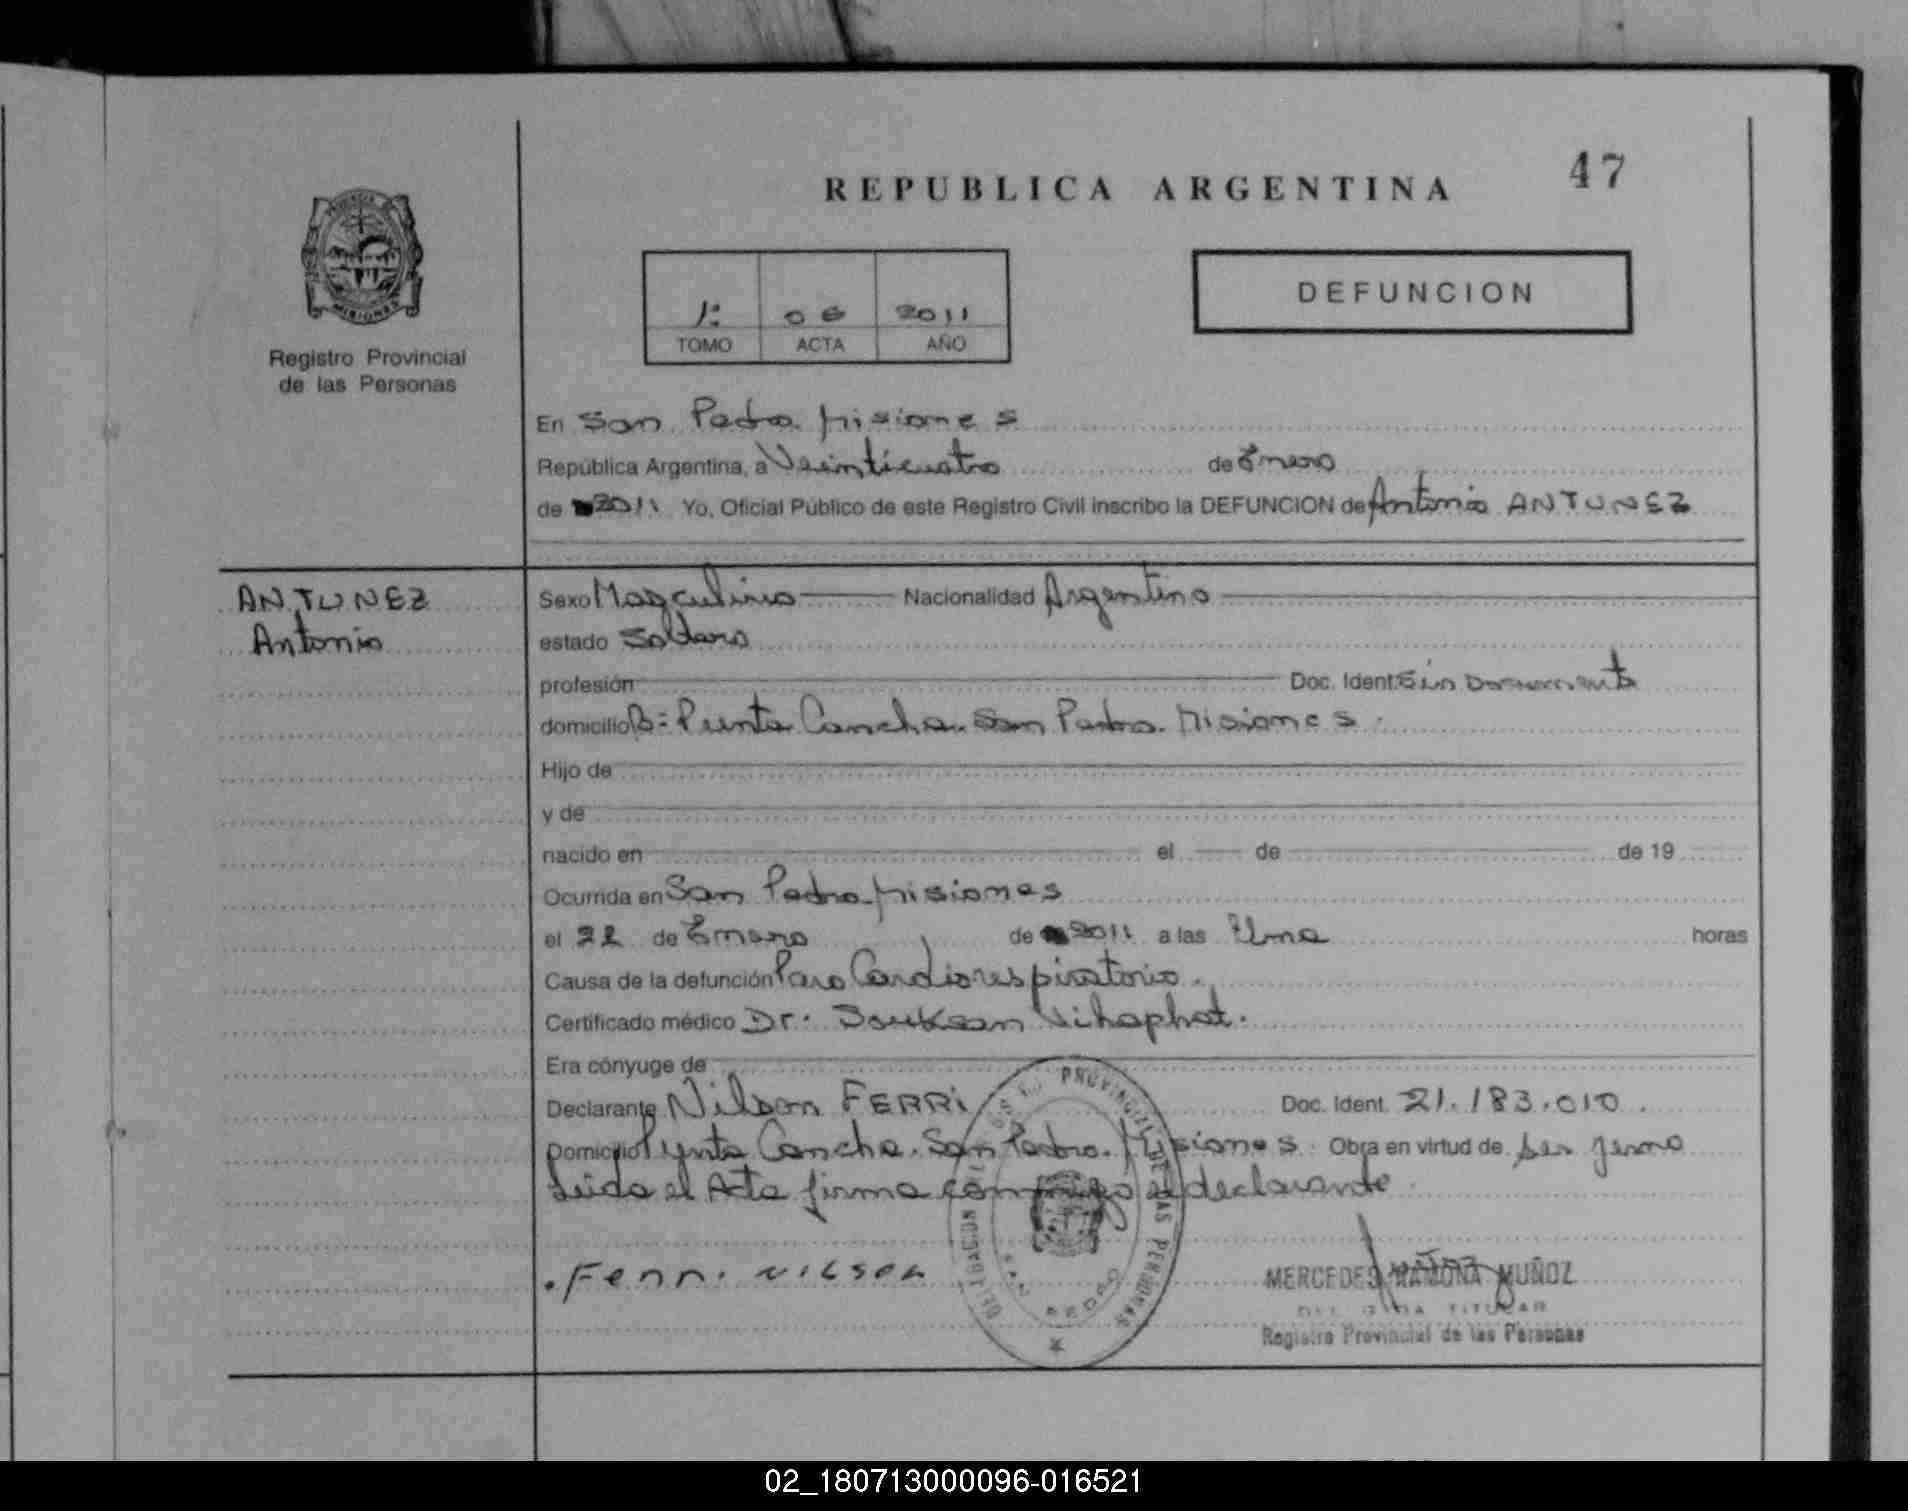 47
REPUBLICA ARGENTINA
PROVINCIA
MISIONES
Registro Provincial
de las Personas
1º 06 2011
TOMO ACTA AÑO
DEFUNCION
En San Pedro. Misiones
República Argentina, a Veinticuatro de Enero
de 2011 Yo, Oficial Público de este Registro Civil inscribo la DEFUNCION de Antonio ANTUNEZ
ANTUNEZ
Antonio
Sexo Masculino Nacionalidad Argentino
estado Soltero
profesión Doc. Ident. Sin Documento
domicilio Bº Punta Cancha. San Pedro. Misiones.
Hijo de
y de
nacido en el de de 19
Ocurrida en San Pedro. Misiones
el 22 de Enero de 2011 a las Una horas
Causa de la defunción Paro Cardiorespiratorio.
Certificado médico Dr. Soukean Vihaphat.
Era cónyuge de
Declarante Nilson FERRI Doc. Ident. 21.183.010.
Domicilio Punta Cancha. San Pedro. Misiones. Obra en virtud de ser yerno
Leída el Acta firma conmigo el declarante.
. Ferri. NILSON
DELEGACION
PROVINCIAL DE LAS PERSONAS
SAN PEDRO
MERCEDES RAMONA MUÑOZ
DELEGADA TITULAR
Registro Provincial de las Personas
02_180713000096-016521